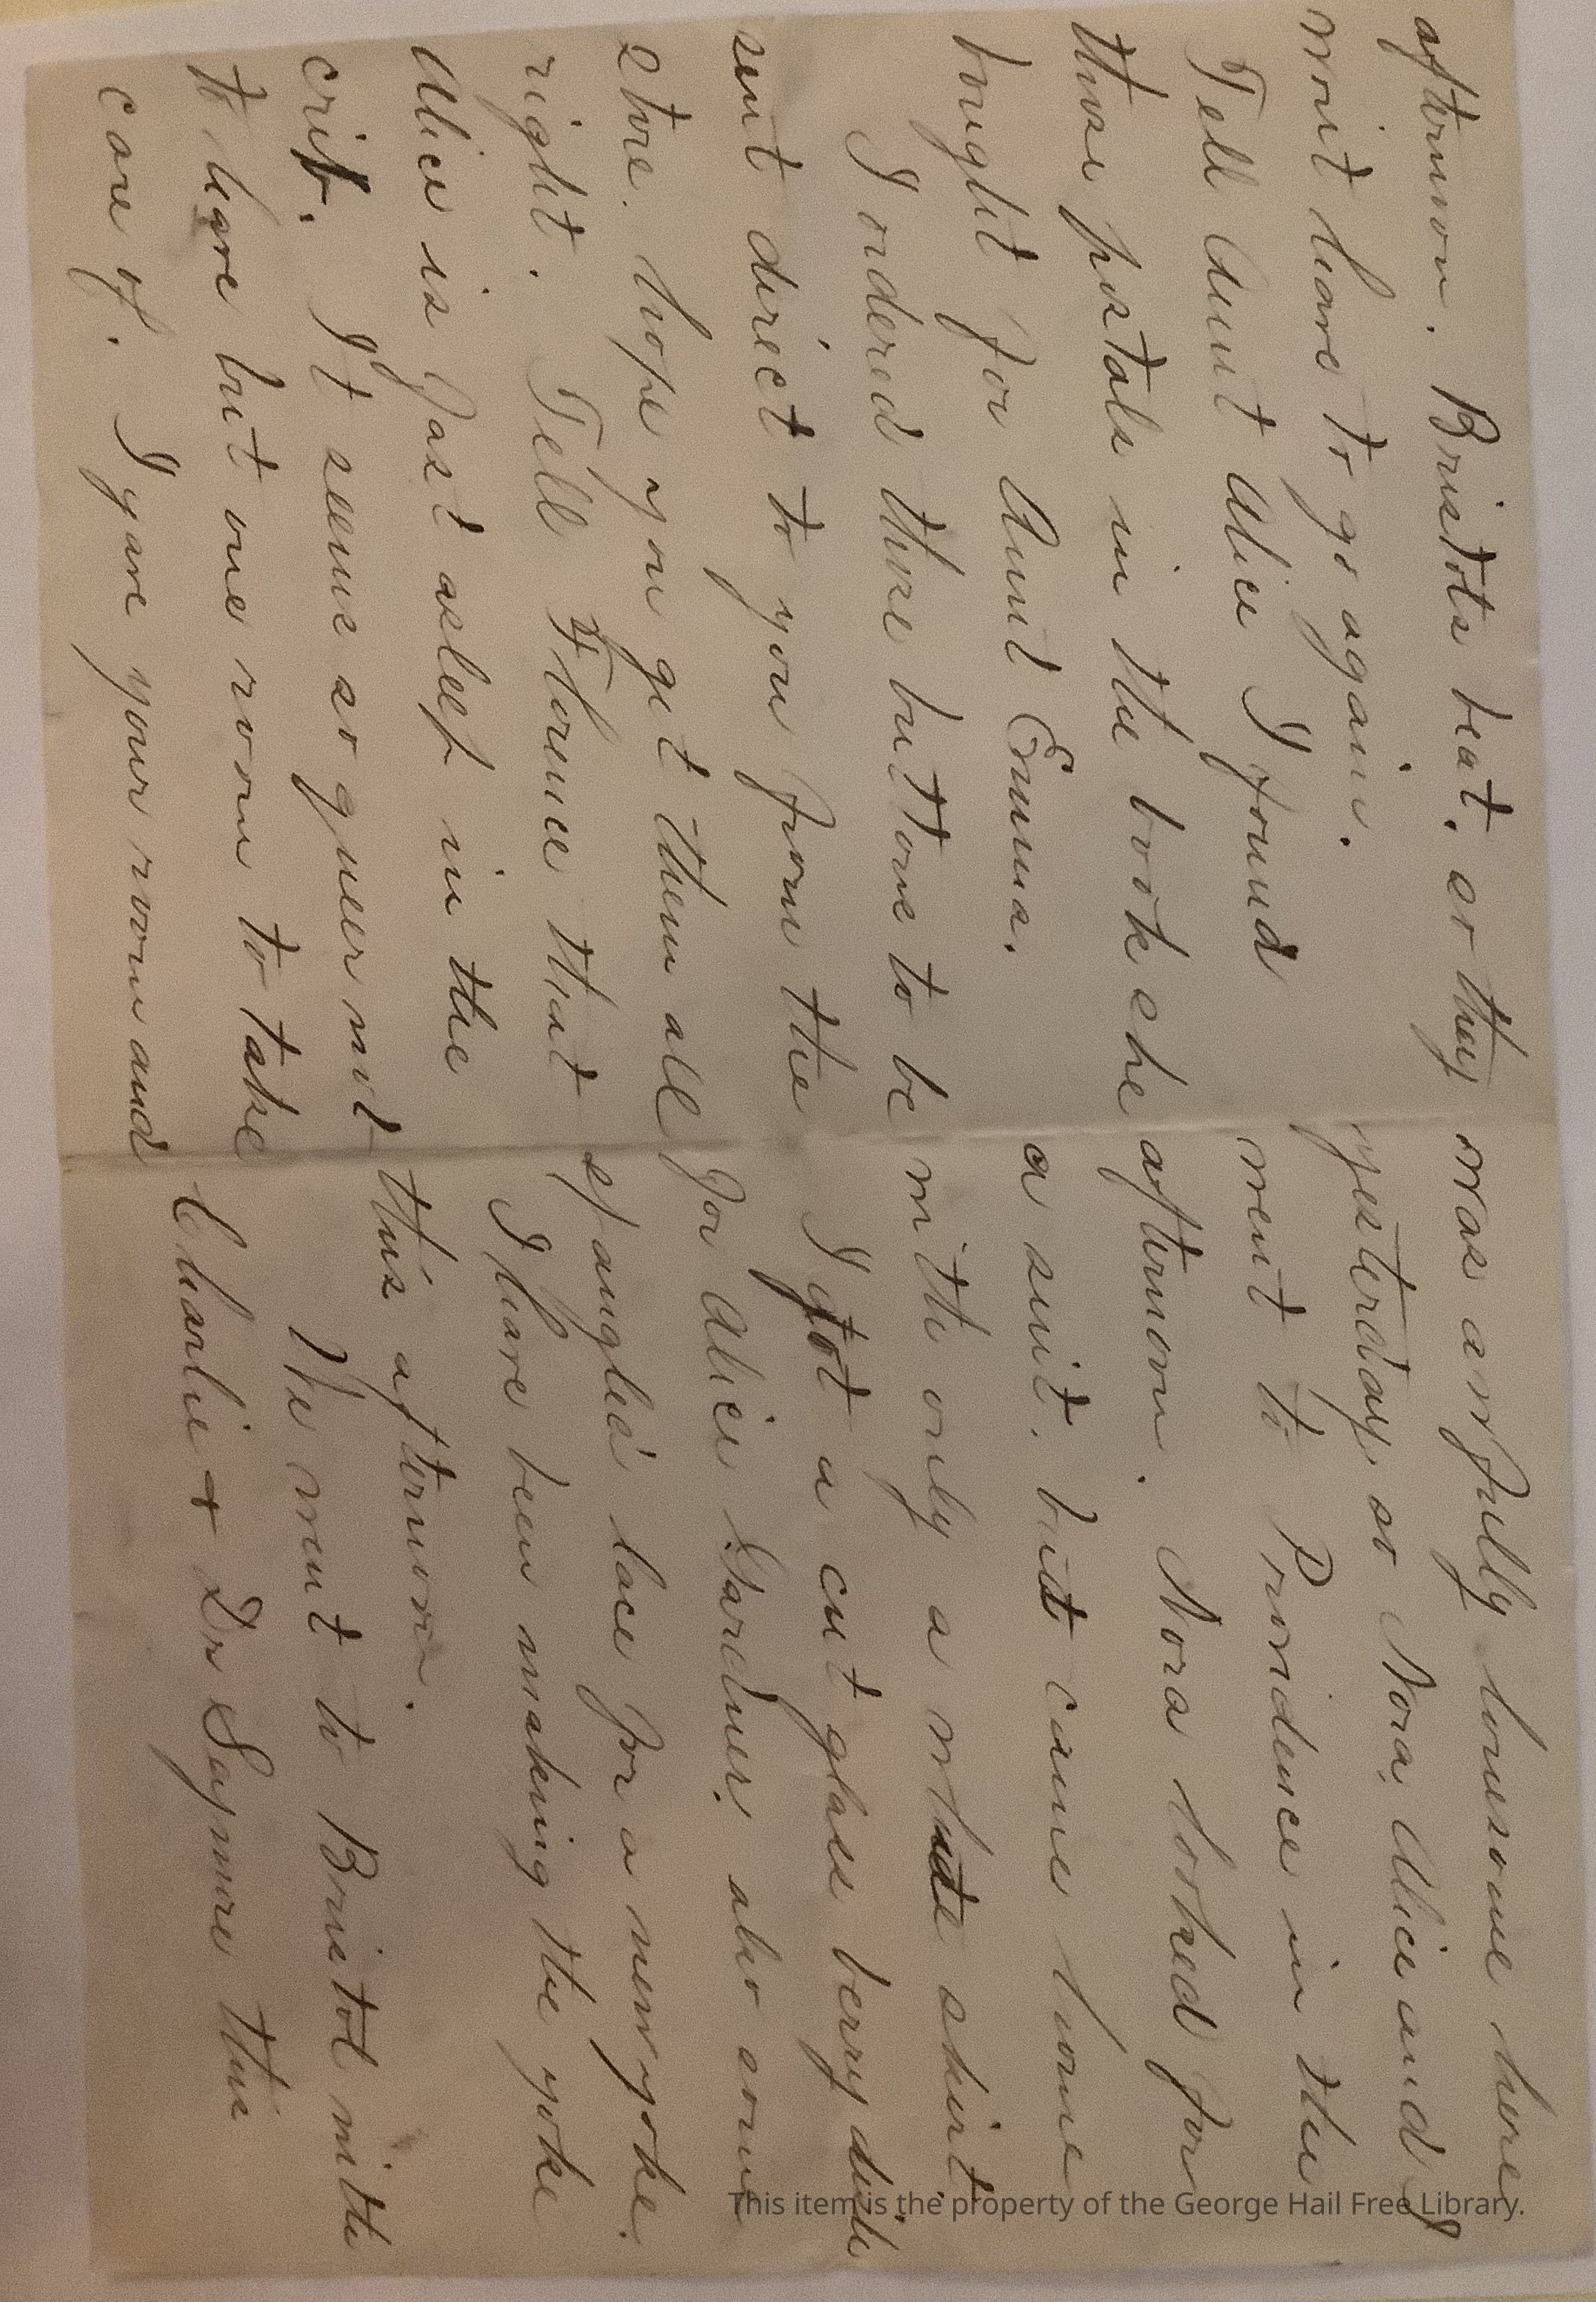 was awfully lonesome here
yesterday so Nora, Alice and I
went to Providence in the
afternoon. Nora looked for
a suit, but came home
with only a white skirt.
I got a cut glass berry dish
for Alice Gardner, also some
spangled lace for a new yoke.
I have been making the yoke
this afternoon.
We went to Bristol with
Charlie + Dr Saymre this
afternoon. Bristols beat, so they
wont have to go again.
Tell Aunt Alice I found
those postals in the book she
bought for Aunt Emma.
I ordered those buttons to be
sent direct to you from the
store. hope you get them all
right. Tell Florence that
Alice is fast asleep in the
crib. It seems so queer not
to have but one room to take
care of. I gave your room and
This item is the property of the George Hail Free Library.